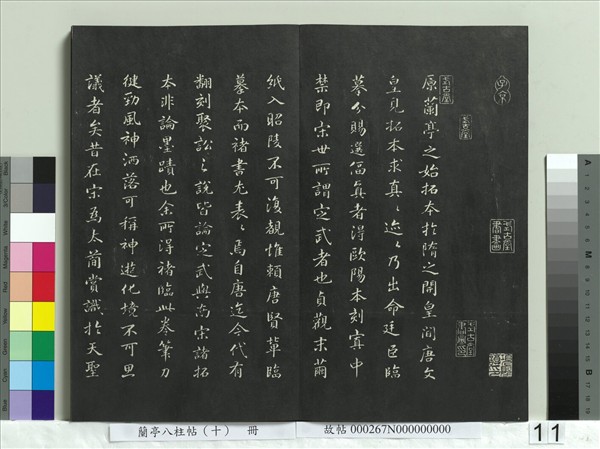 原蘭亭之始拓本於隋之開皇間唐文
皇見拓本求真〻迹〻乃出命廷臣臨
摹分賜選逼真者得歐陽本刻寘中
禁即宋世所謂定武者也貞觀末繭
紙入昭陵不可復覩惟賴唐賢輩臨
摹本而褚書尤表〻焉自唐迄今代有
翻刻聚訟之說皆論定武與南宋諸拓
本非論墨蹟也余所得褚臨此卷筆力
健勁風神洒落可稱神遊化境不可思
議者矣昔在宋為太簡賞識於天聖
蘭亭八柱帖（十） 冊
故帖 000267N000000000
11